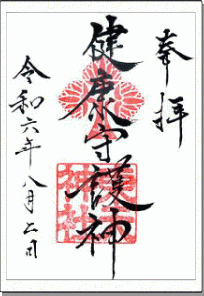 奉拝
健康守護神
令和六年八月二日